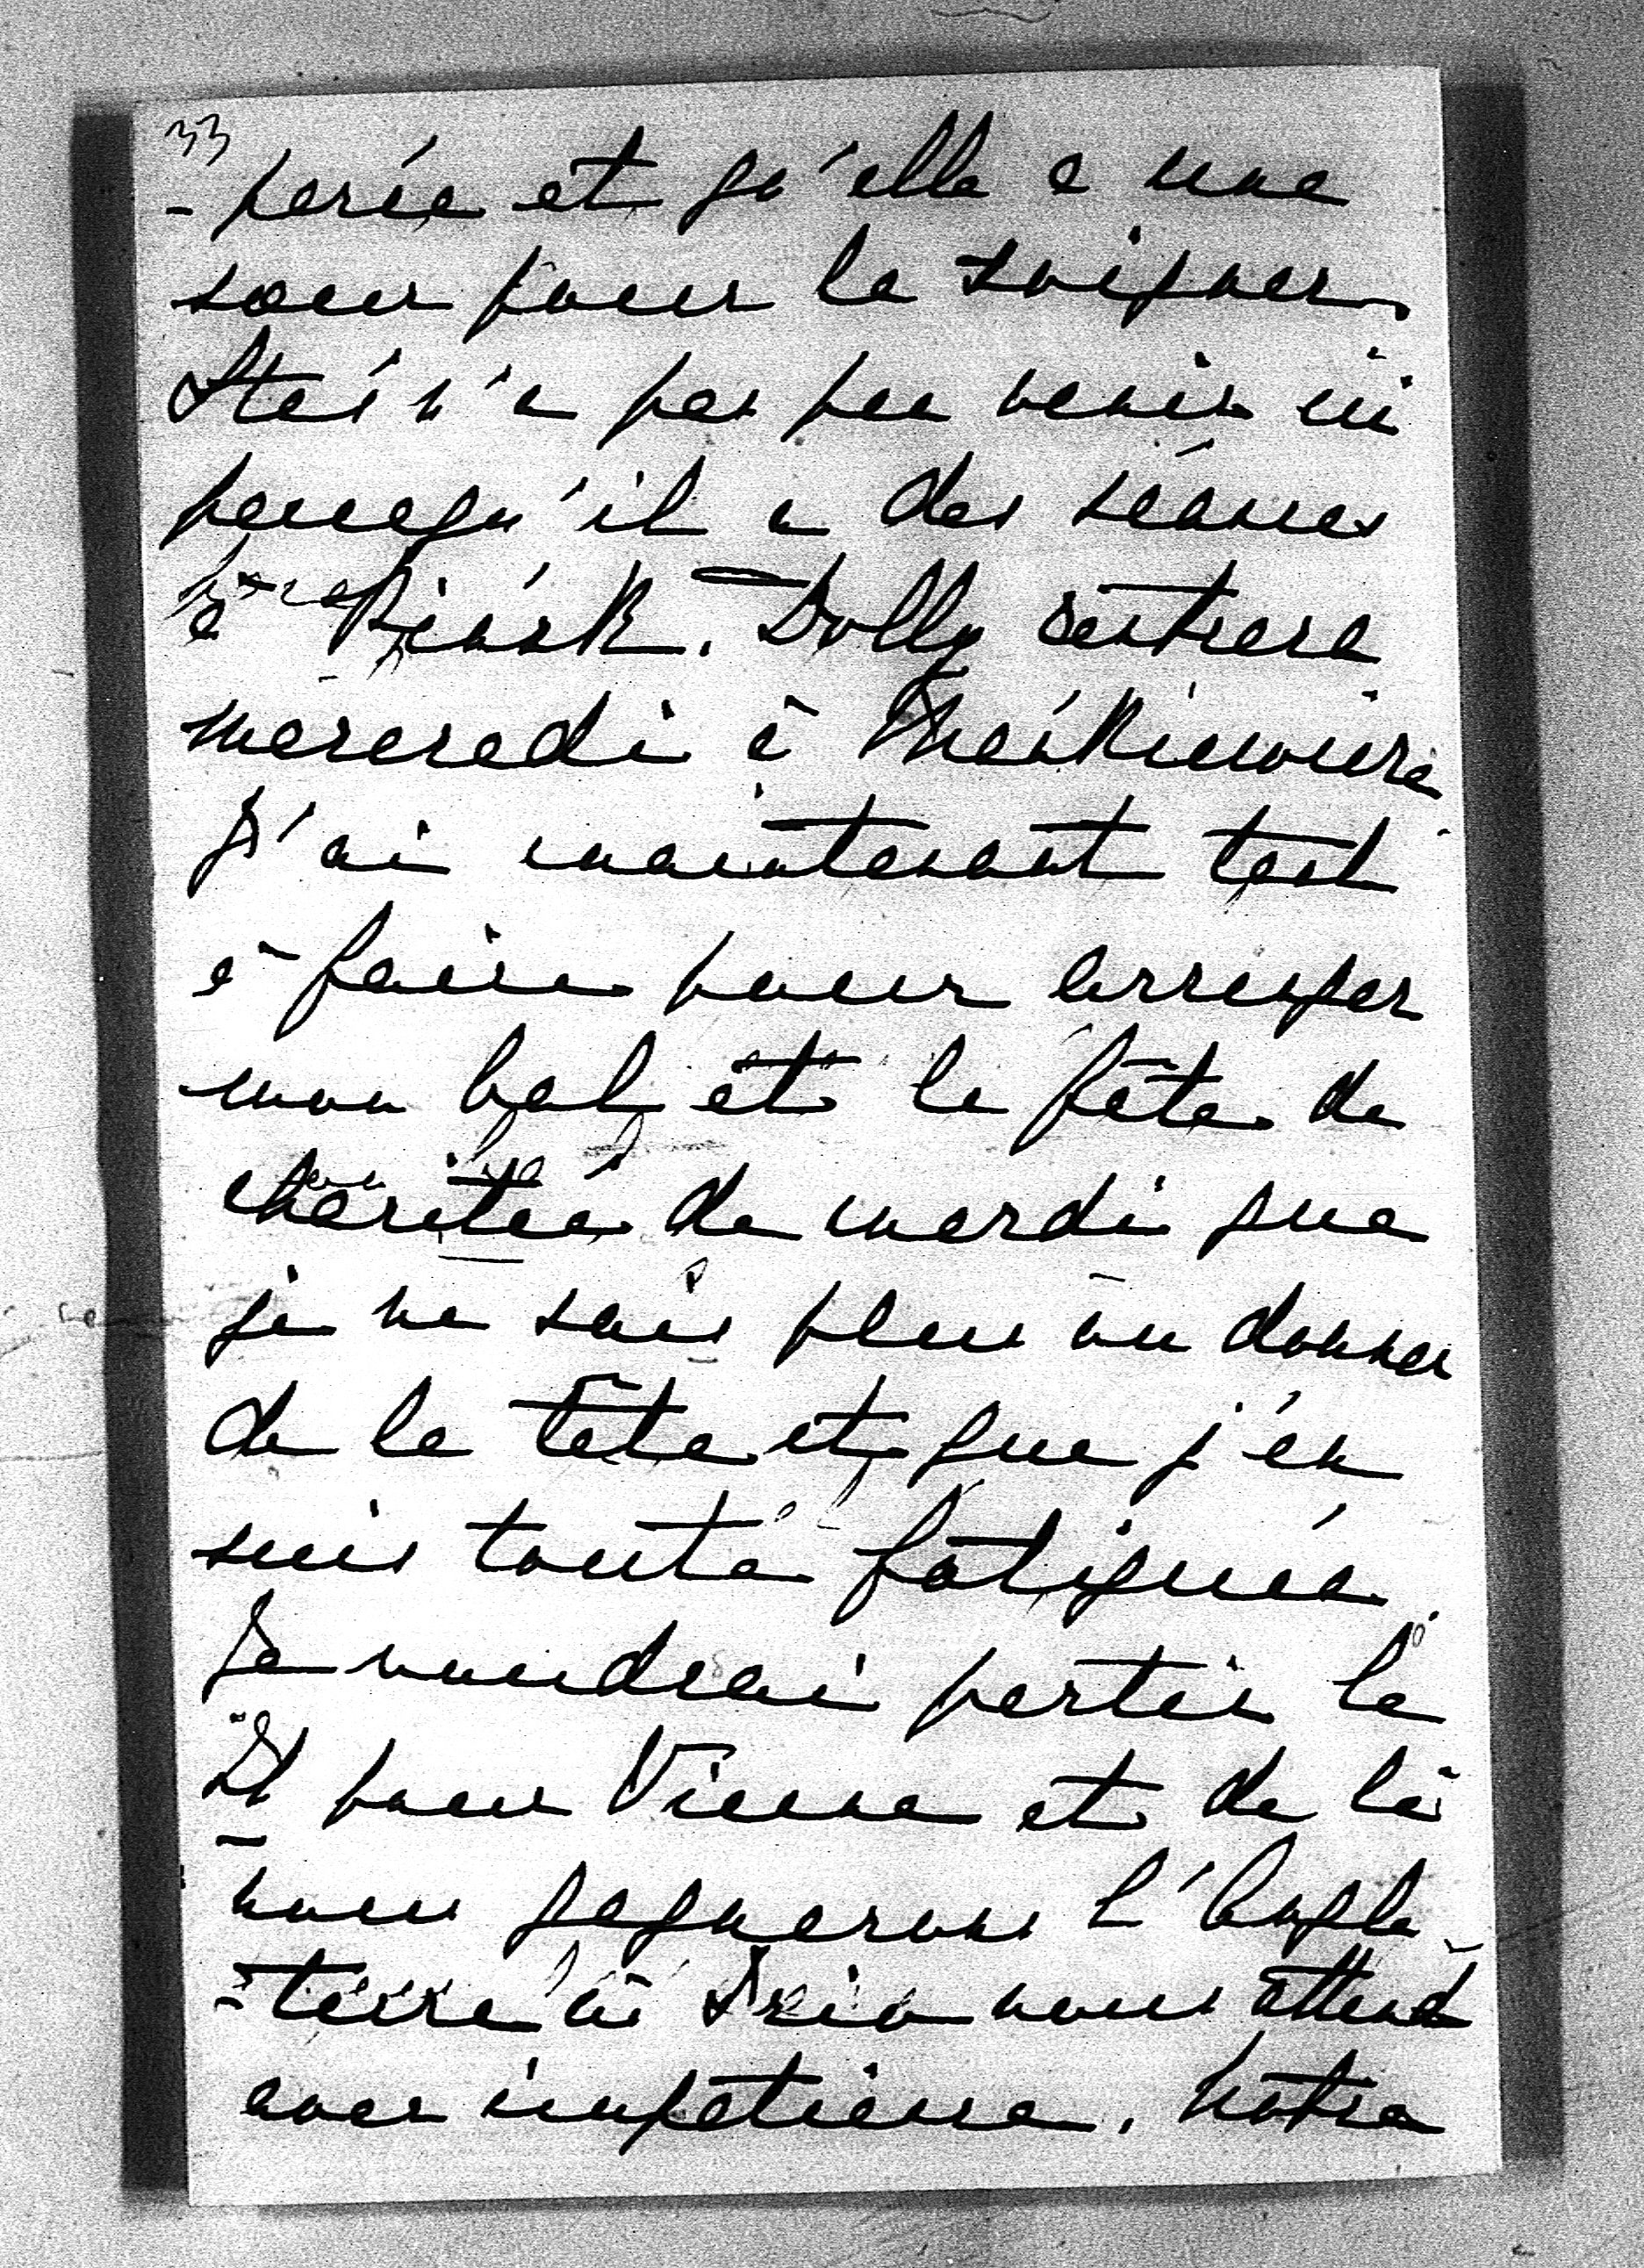 33
- parée et qu'elle a une
soeur pour la soigner.
Staś n'a pas pu venir ici
parcequ'il a des séances
à Pińsk. Dolly rentrera
mercredi à Mańkiewicze
J'ai maintenant tant
à faire pour arranger
mon bal et la fête de
charitée de mardi que
je ne sais plus où donner
de la tête et que j'en
suis toute fatiguée.
Je voudrai partir le
pour Vienne et de là
nous gagnerons l'Angle-
-terre où nous attend
avec impatience. Notre